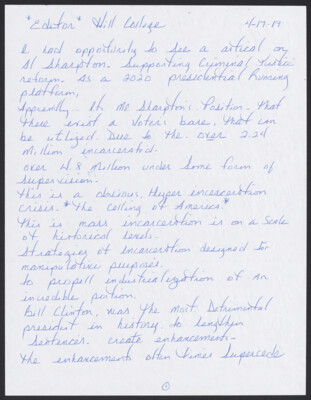 "Editor" Hill College 4-17-19
I had opportunity to see a artical on
Al Sharpton. Supporting Criminal Justice
reform. As a 2020 presidential Running
platform,
Apprently.. It's Mr Sharpton's Position. that
there exist a Voters base, that can
be utilized Due to the. over 2.24
Million incarcerated.
over 4.8 Million under Some form of
Supervision.
This is a obvious, Hyper encesceration
Crisis. "The Celling of America."
This is mass incarceration is on a Scale
of historical levels.
Strategies of Incarceration designed for
manipulative purposes.
to propell industrialization of An
incredible portion.
Bill Clinton, was The most Detrumental
president in history. to lengthen
Sentences. create enhancements-
The enhancements often times Supercede
1